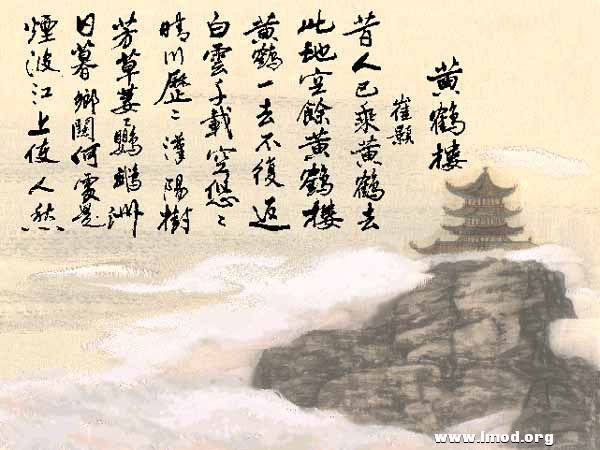 黄鶴樓
崔顥
昔人已乘黄鶴去
此地空餘黄鶴樓
黄鶴一去不復返
白雲千載空悠悠
晴川歷歷漢陽樹
芳草萋萋鸚鵡洲
日暮鄉關何處是
煙波江上使人愁
www.lmod.org